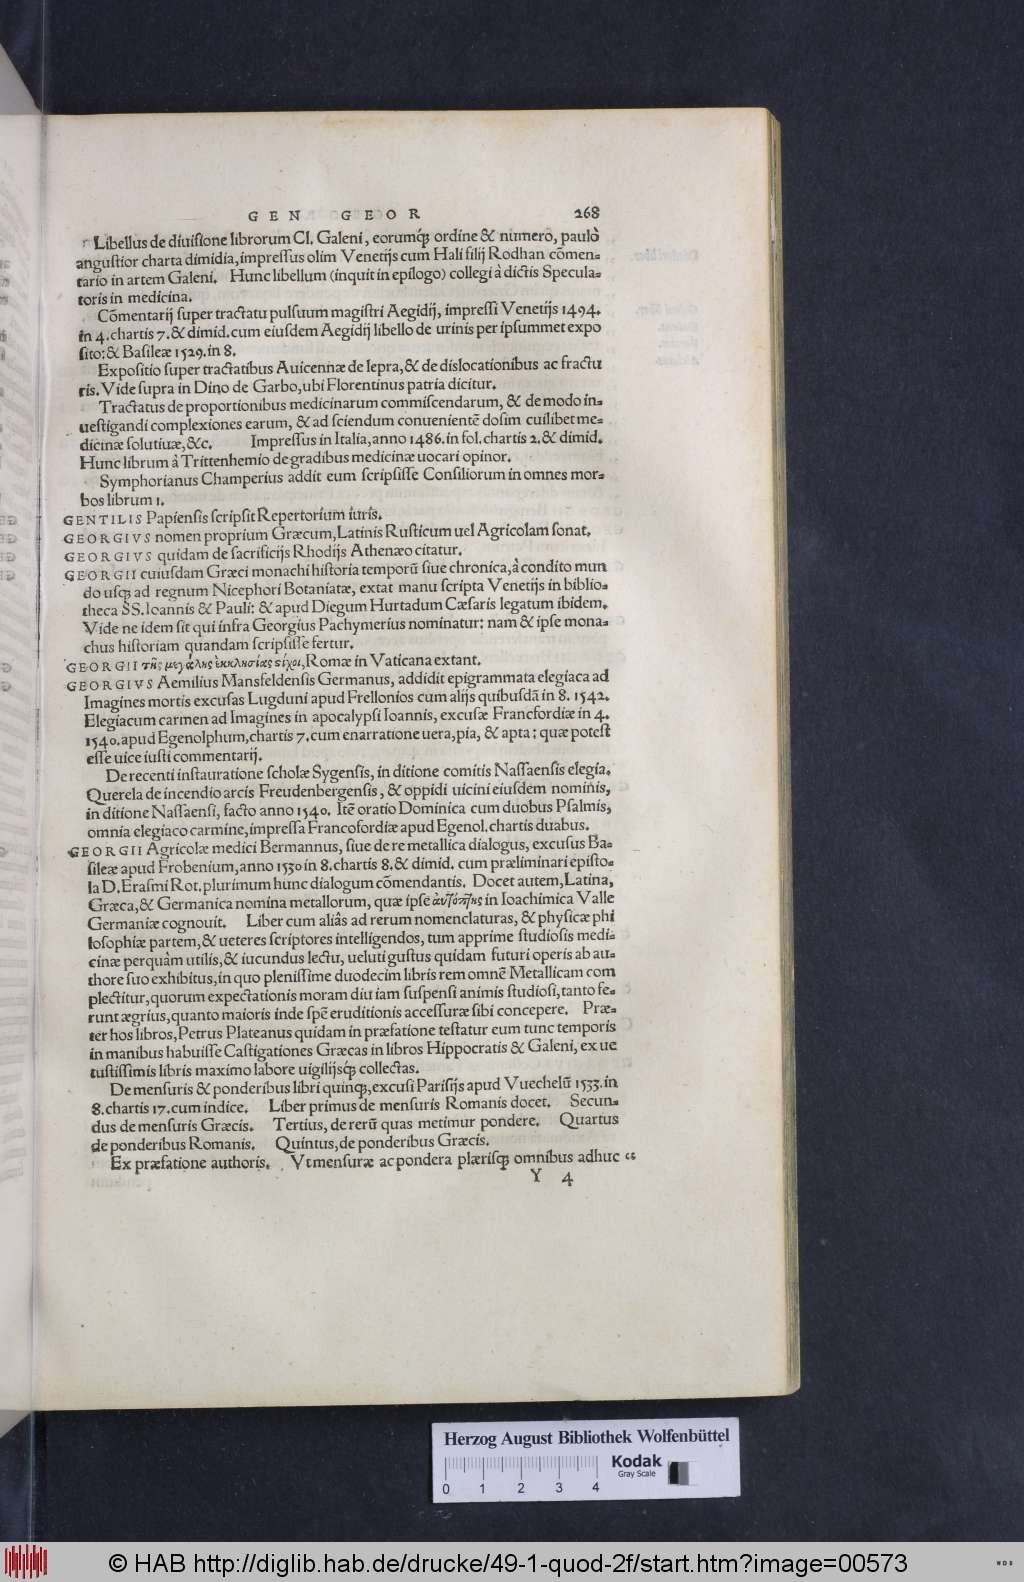 GEN GEOR 268
Libellus de diuisione librorum Cl. Galeni, eorumq́ꝫ ordine & numero, paulò
angustior charta dimidia, impressus olim Venetijs cum Hali filij Rodhan cōmen-
tario in artem Galeni. Hunc libellum (inquit in epilogo) collegi à dictis Specula-
toris in medicina.
Cōmentarij super tractatu pulsuum magistri Aegidij, impressi Venetijs 1494.
in 4. chartis 7. & dimid. cum eiusdem Aegidij libello de urinis per ipsummet expo
sito: & Basileæ 1529. in 8.
Expositio super tractatibus Auicennæ de lepra, & de dislocationibus ac fractu
ris. Vide supra in Dino de Garbo, ubi Florentinus patria dicitur.
Tractatus de proportionibus medicinarum commiscendarum, & de modo in-
uestigandi complexiones earum, & ad sciendum conuenientē dosim cuilibet me-
dicinæ solutiuæ, &c. Impressus in Italia, anno 1486. in fol. chartis 2. & dimid.
Hunc librum à Trittenhemio de gradibus medicinæ uocari opinor.
Symphorianus Champerius addit eum scripsisse Consiliorum in omnes mor-
bos librum 1.
GENTILIS Papiensis scripsit Repertorium iuris.
GEORGIVS nomen proprium Græcum, Latinis Rusticum uel Agricolam sonat.
GEORGIVS quidam de sacrificijs Rhodijs Athenæo citatur.
GEORGII cuiusdam Græci monachi historia temporū siue chronica, à condito mun
do usqꝫ ad regnum Nicephori Botaniatæ, extat manu scripta Venetijs in biblio-
theca SS. Ioannis & Pauli: & apud Diegum Hurtadum Cæsaris legatum ibidem.
Vide ne idem sit qui infra Georgius Pachymerius nominatur: nam & ipse mona-
chus historiam quandam scripsisse fertur.
GEORGII τῆς μεγάλης ἐκκλησίας στίχοι, Romæ in Vaticana extant.
GEORGIVS Aemilius Mansfeldensis Germanus, addidit epigrammata elegiaca ad
Imagines mortis excusas Lugduni apud Frellonios cum alijs quibusdā in 8. 1542.
Elegiacum carmen ad Imagines in apocalypsi Ioannis, excusæ Francfordiæ in 4.
1540. apud Egenolphum, chartis 7. cum enarratione uera, pia, & apta: quæ potest
esse uice iusti commentarij.
De recenti instauratione scholæ Sygensis, in ditione comitis Nassaensis elegia.
Querela de incendio arcis Freudenbergensis, & oppidi uicini eiusdem nominis,
in ditione Nassaensi, facto anno 1540. Itē oratio Dominica cum duobus Psalmis,
omnia elegiaco carmine, impressa Francofordiæ apud Egenol. chartis duabus.
GEORGII Agricolæ medici Bermannus, siue de re metallica dialogus, excusus Ba-
sileæ apud Frobenium, anno 1530 in 8. chartis 8. & dimid. cum præliminari episto-
la D. Erasmi Rot. plurimum hunc dialogum cōmendantis. Docet autem, Latina,
Græca, & Germanica nomina metallorum, quæ ipse αὐτόπτης in Ioachimica Valle
Germaniæ cognouit. Liber cum aliâs ad rerum nomenclaturas, & physicæ phi
losophiæ partem, & ueteres scriptores intelligendos, tum apprime studiosis medi-
cinæ perquàm utilis, & iucundus lectu, ueluti gustus quidam futuri operis ab au-
thore suo exhibitus, in quo plenissime duodecim libris rem omnē Metallicam com
plectitur, quorum expectationis moram diu iam suspensi animis studiosi, tanto fe-
runt ægrius, quanto maioris inde spē eruditionis accessuræ sibi concepere. Præ-
ter hos libros, Petrus Plateanus quidam in præfatione testatur eum tunc temporis
in manibus habuisse Castigationes Græcas in libros Hippocratis & Galeni, ex ue
tustissimis libris maximo labore uigilijsq́ꝫ collectas.
De mensuris & ponderibus libri quinqꝫ, excusi Parisijs apud Vuechelū 1533. in
8. chartis 17. cum indice. Liber primus de mensuris Romanis docet. Secun-
dus de mensuris Græcis. Tertius, de rerū quas metimur pondere. Quartus
de ponderibus Romanis. Quintus, de ponderibus Græcis.
Ex præfatione authoris. Vt mensuræ ac pondera plærisqꝫ omnibus adhuc “
Y 4
Herzog August Bibliothek Wolfenbüttel
Kodak
Gray Scale
0 1 2 3 4
© HAB http://diglib.hab.de/drucke/49-1-quod-2f/start.htm?image=00573